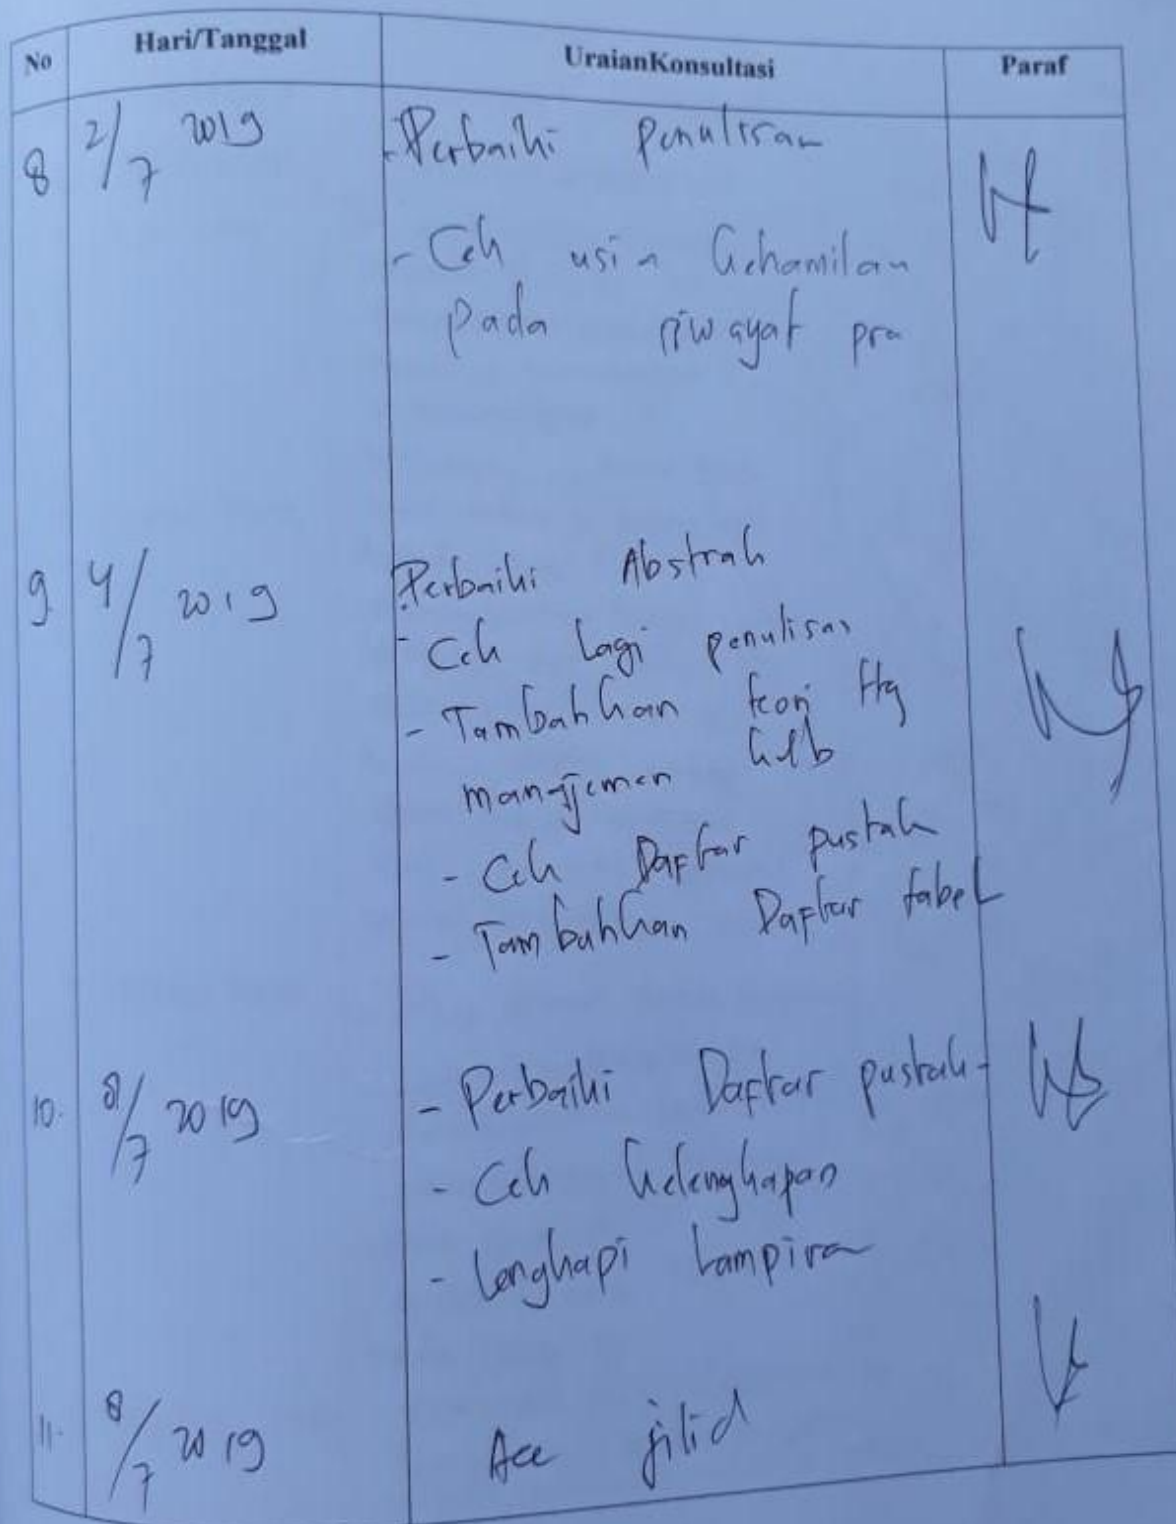 No Hari/Tanggal UraianKonsultasi Paraf
8 2/7 2019 - Perbaiki penulisan
- Cek usia kehamilan
pada riwayat pra
9. 4/7 2019 - Perbaiki Abstrak
- Cek lagi penulisan
- Tambahkan teori ttg
manajemen keb
- Cek Daftar pustak
- Tambahkan Daftar tabel
10. 8/7 2019 - Perbaiki Daftar pustak
- Cek kelengkapan
- lengkapi lampiran
11. 8/7 2019 Acc jilid